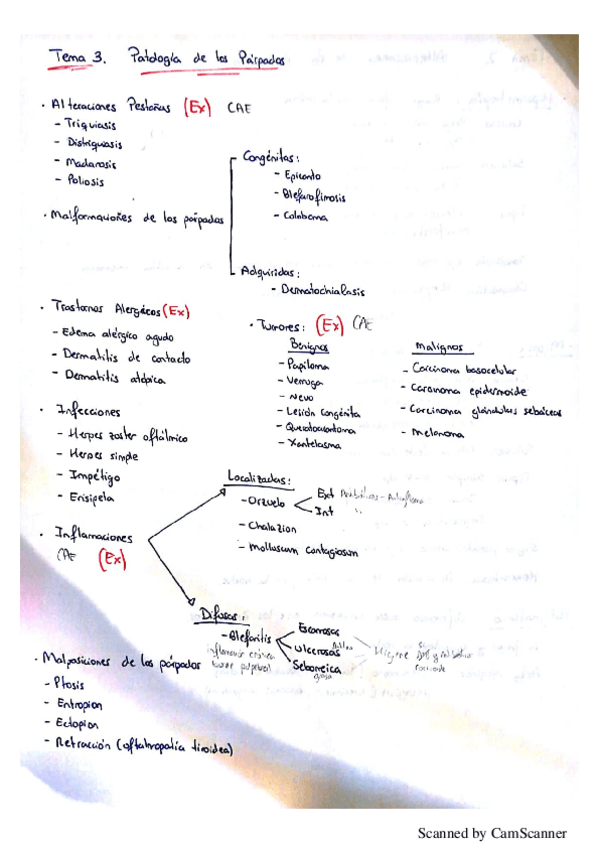 Tema 3. Patología de los Párpados
· Alteraciones Pestañas (Ex) CAE
- Triquiasis
- Distiquiasis
- Madarosis
- Poliosis
· Malformaciones de los párpados
Congénitas:
- Epicanto
- Blefarofimosis
- Coloboma
Adquiridas:
- Dermatochialasis
· Trastornos Alergécos (Ex)
- Edema alérgico agudo
- Dermatitis de contacto
- Dermatitis atópica
· Tumores: (Ex) CAE
Benignos
- Papiloma
- Verruga
- Nevo
- Lesión congénita
- Queratoacantoma
- Xantelasma
Malignos
- Carcinoma basocelular
- Carcinoma epidermoide
- Carcinoma glándulas sebáceas
- Melanoma
· Infecciones
- Herpes zoster oftálmico
- Herpes simple
- Impétigo
- Erisipela
· Inflamaciones
CAE (Ex)
Localizadas:
- Orzuelo
Ext
Int
- Chalazion
- Molluscum contagiosum
Difusas:
- Blefaritis
inflamación crónica
borde palpebral
Escamosas
Ulcerosas
Seborreica
Higiene
· Malposiciones de los párpados
- Ptosis
- Entropion
- Ectopion
- Retracción (oftalmopatía tiroidea)
Scanned by CamScanner